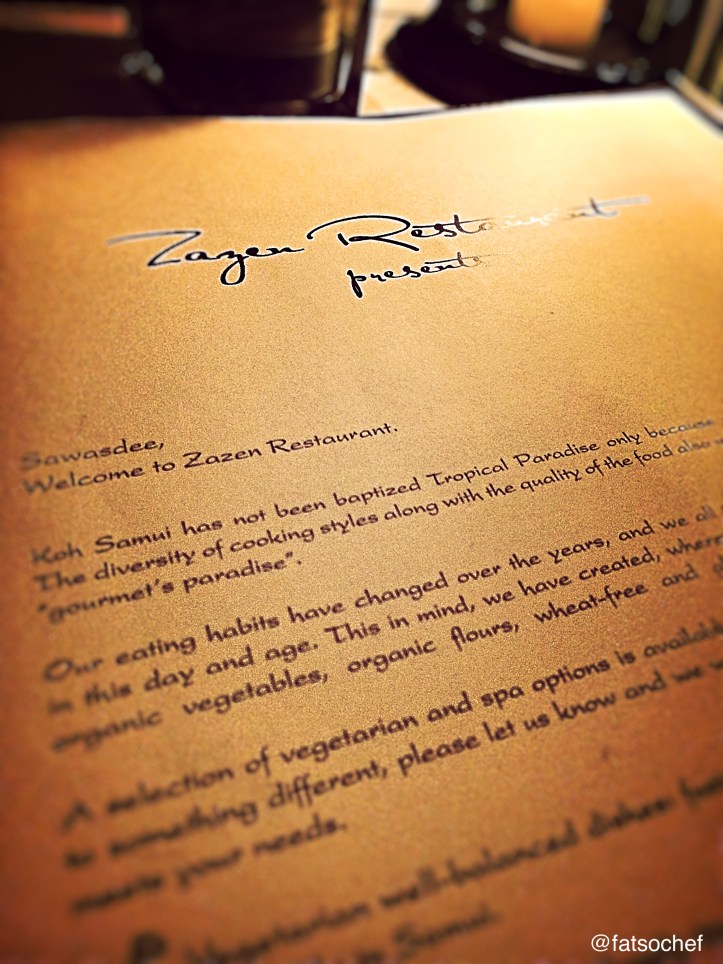 Zazen Restaurant
presents
Sawasdee,
Welcome to Zazen Restaurant.
Koh Samui has not been baptized Tropical Paradise only because
The diversity of cooking styles along with the quality of the food also
"gourmet's paradise".
Our eating habits have changed over the years, and we all
in this day and age. This in mind, we have created, where
organic vegetables, organic flours, wheat-free and
A selection of vegetarian and spa options is available
to something different, please let us know and we
meets your needs.
Vegetarian well-balanced dishes
Samui.
@fatsochef